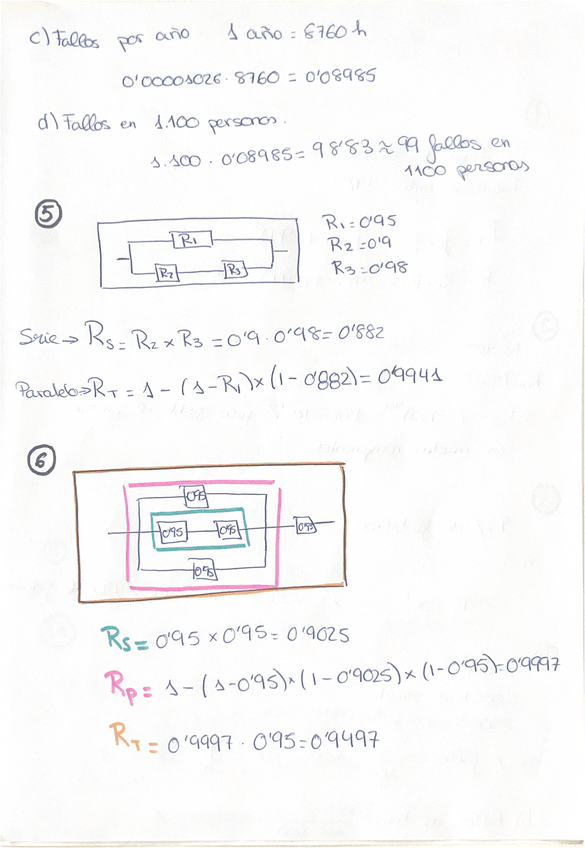 c) Fallos por año 1 año = 8760 h
0'00001026 · 8760 = 0'08985
d) Fallos en 1.100 personas.
1.100 · 0'08985 = 98'83 ≈ 99 fallos en
1100 personas
5
R1 = 0'95
R2 = 0'9
R3 = 0'98
R1
R2 R3
Serie → Rs = R2 x R3 = 0'9 · 0'98 = 0'882
Paralelo → RT = 1 - (1 - R1) x (1 - 0'882) = 0'9941
6
0'95
0'95 0'95 0'95
0'95
Rs = 0'95 x 0'95 = 0'9025
Rp = 1 - (1 - 0'95) x (1 - 0'9025) x (1 - 0'95) = 0'9997
RT = 0'9997 · 0'95 = 0'9497